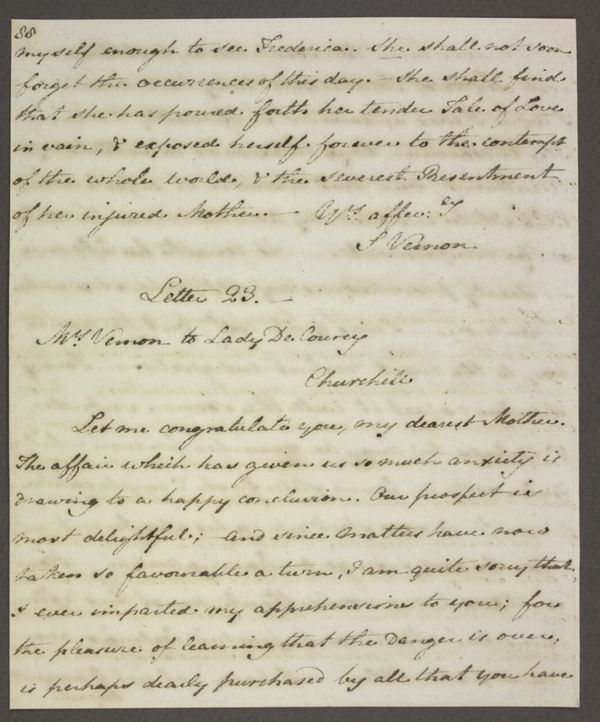 88
myself enough to see Frederica. She shall not soon
forget the occurrences of this day. – She shall find
that she has poured forth her tender Tale of Love
in vain, & exposed herself forever to the contempt
of the whole world, & the severest Resentment
of her injured Mother. — Yrs. affec:ly
S. Vernon.
Letter 23. —
Mrs. Vernon to Lady De Courcy
Churchill
Let me congratulate you, my dearest Mother.
The affair which has given us so much anxiety is
drawing to a happy conclusion. Our prospect is
most delightful; and since matters have now
taken so favourable a turn, I am quite sorry that
I ever imparted my apprehensions to you; for
the pleasure of learning that the Danger is over,
is perhaps dearly purchased by all that you have